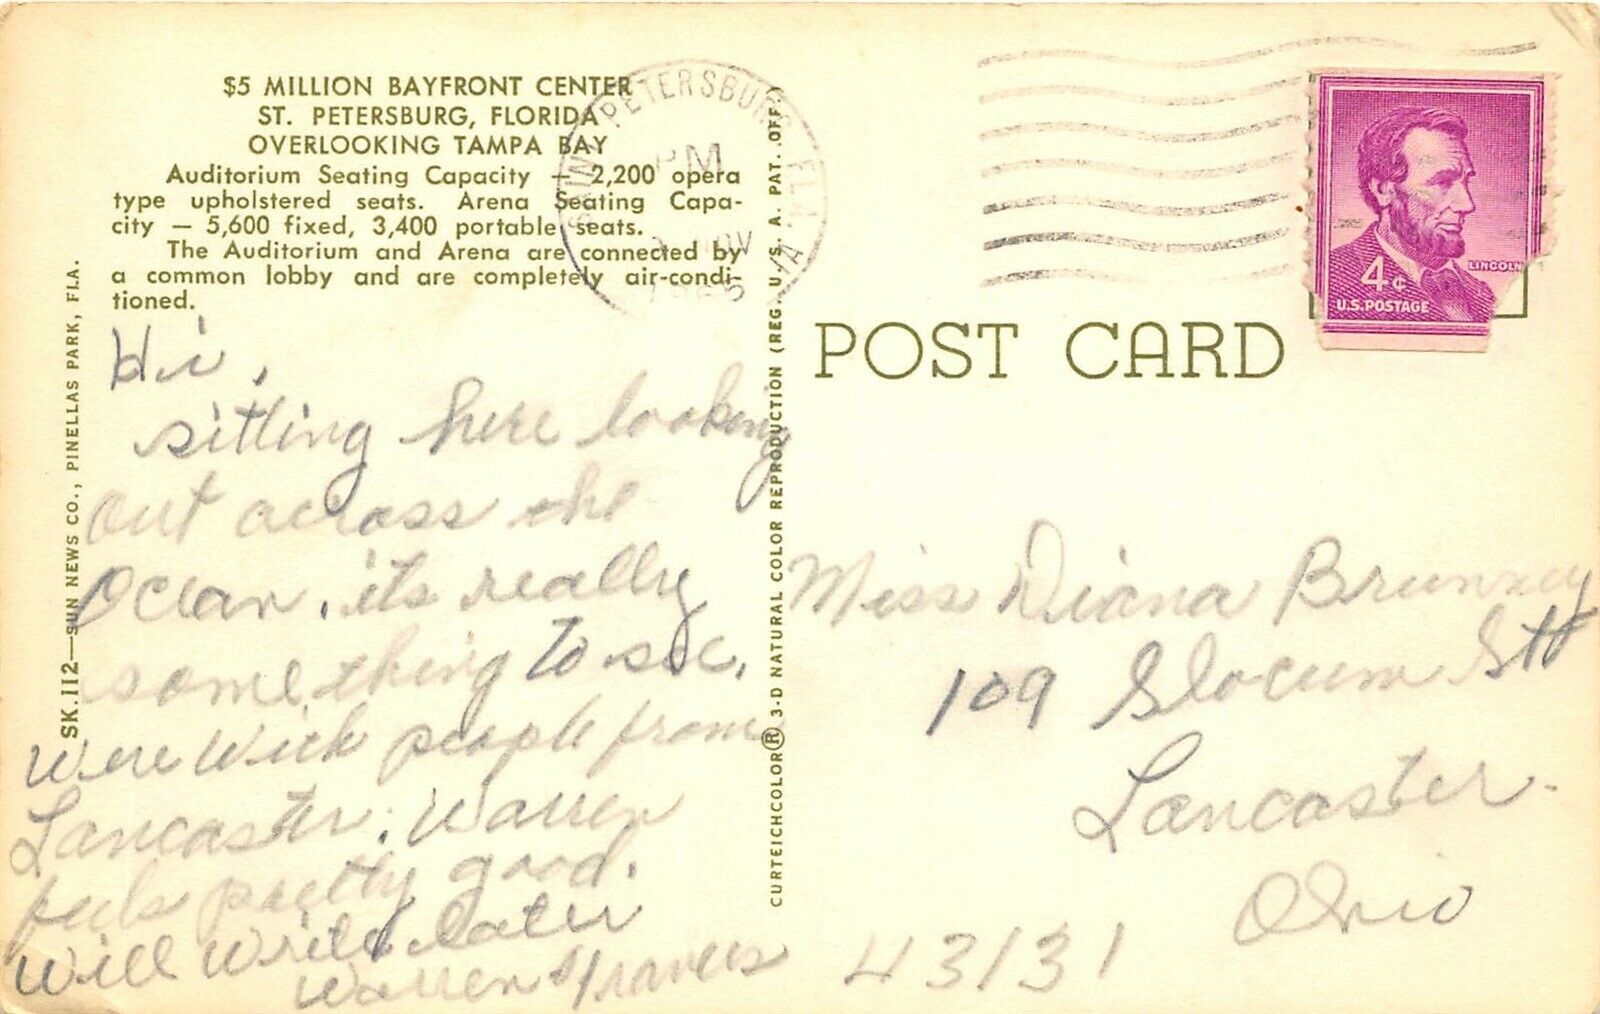 $5 MILLION BAYFRONT CENTER
ST. PETERSBURG, FLORIDA
OVERLOOKING TAMPA BAY
Auditorium Seating Capacity — 2,200 opera
type upholstered seats. Arena Seating Capa-
city — 5,600 fixed, 3,400 portable seats.
The Auditorium and Arena are connected by
a common lobby and are completely air-condi-
tioned.
SK.112—SUN NEWS CO., PINELLAS PARK, FLA.
Hi,
sitting here looking
out across the
Ocean, its really
something to see.
Were with people from
Lancaster. Warren
feels pretty good.
Will write later
Warren &
CURTEICHCOLOR® 3-D NATURAL COLOR REPRODUCTION (REG. U. S. A. PAT. OFF.)
SAINT PETERSBURG, FLA.
PM
NOV
POST CARD
LINCOLN
4¢
U.S. POSTAGE
Miss Diana
109 Slocum Stt
Lancaster.
Ohio
43131